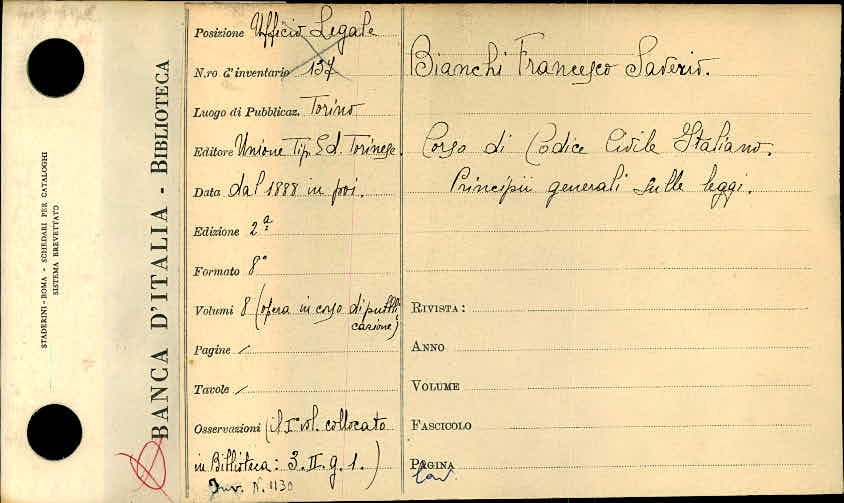 STADERINI - ROMA - SCHEDARI PER CATALOGHI
SISTEMA BREVETTATO
BANCA D'ITALIA - BIBLIOTECA
Posizione Ufficio Legale
N.ro d'inventario 137
Luogo di Pubblicaz. Torino
Editore Unione Tip. Ed. Torinese.
Data dal 1888 in poi.
Edizione 2ª
Formato 8°
Volumi 8 (opera in corso di pubbli
cazione)
Pagine /
Tavole /
Osservazioni (il I° vol. collocato
in Biblioteca: 3. II. g. 1.)
Inv. N. 1130
Bianchi Francesco Saverio.
Corso di Codice Civile Italiano.
Principii generali sulle leggi.
RIVISTA:
ANNO
VOLUME
FASCICOLO
PAGINA